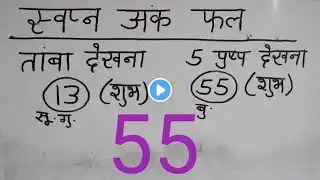 स्वप्न अंक फल
तांबा देखना 5 पुष्प देखना
13 (शुभ) 55 (शुभ)
सू. गु. बु.
55